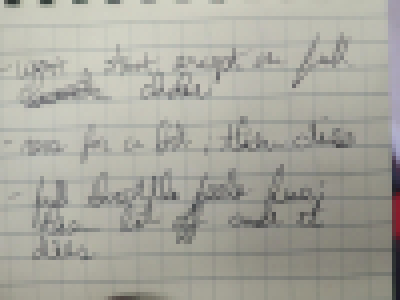 - wont start except on full
choke
- runs for a bit, then dies
- full throttle feels fine,
then let off and it
dies